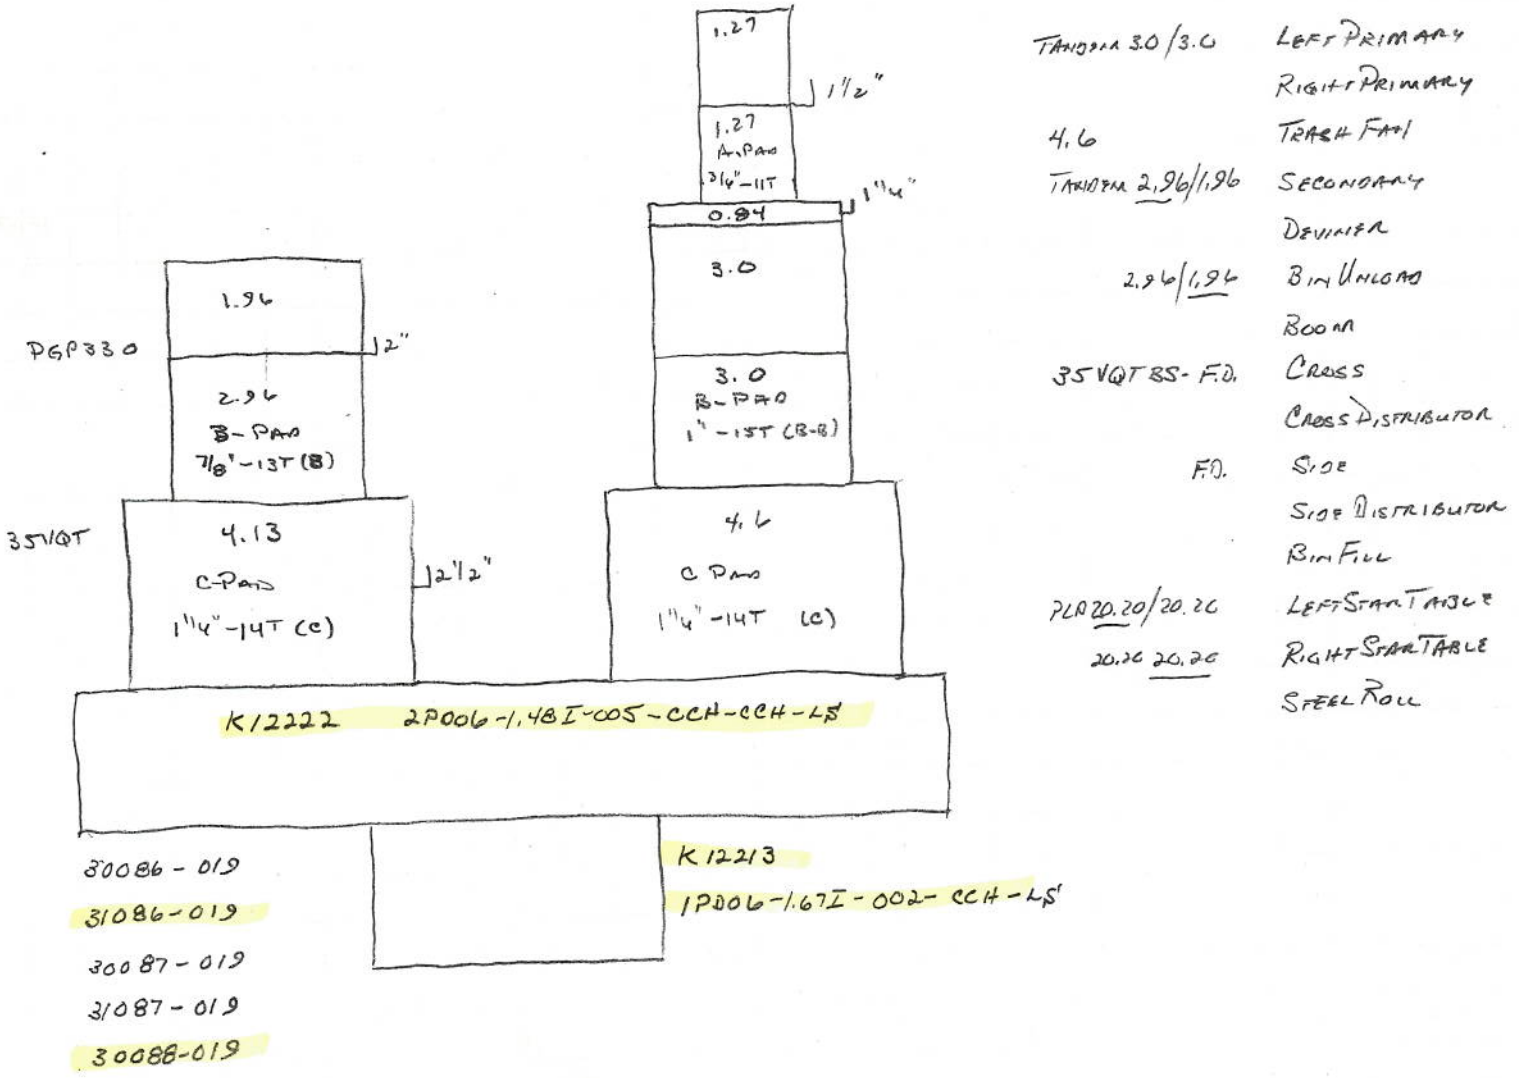 1.27
1 1/2"
1.27
A-PAD
3/4"-11T
1 1/4"
0.84
3.0
3.0
B-PAD
1"-15T (B-B)
4.6
C PAD
1 1/4"-14T (C)
1.96
PGP330
2"
2.96
B-PAD
7/8"-13T (B)
35VQT
4.13
C-PAD
1 1/4"-14T (C)
2 1/2"
K12222 2PD06-1.48I-005-CCH-CCH-LS
K12213
1PD06-1.67I-002-CCH-LS
30086-019
31086-019
30087-019
31087-019
30088-019
TANDEM 3.0/3.0 LEFT PRIMARY
RIGHT PRIMARY
4.6 TRASH FAN
TANDEM 2.96/1.96 SECONDARY
DEVINER
2.96/1.96 BIN UNLOAD
BOOM
35VQTBS-F.D. CROSS
CROSS DISTRIBUTOR
F.D. SIDE
SIDE DISTRIBUTOR
BIN FILL
20.20/20.20 LEFT STAR TABLE
20.20 20.20 RIGHT STAR TABLE
STEEL ROLL